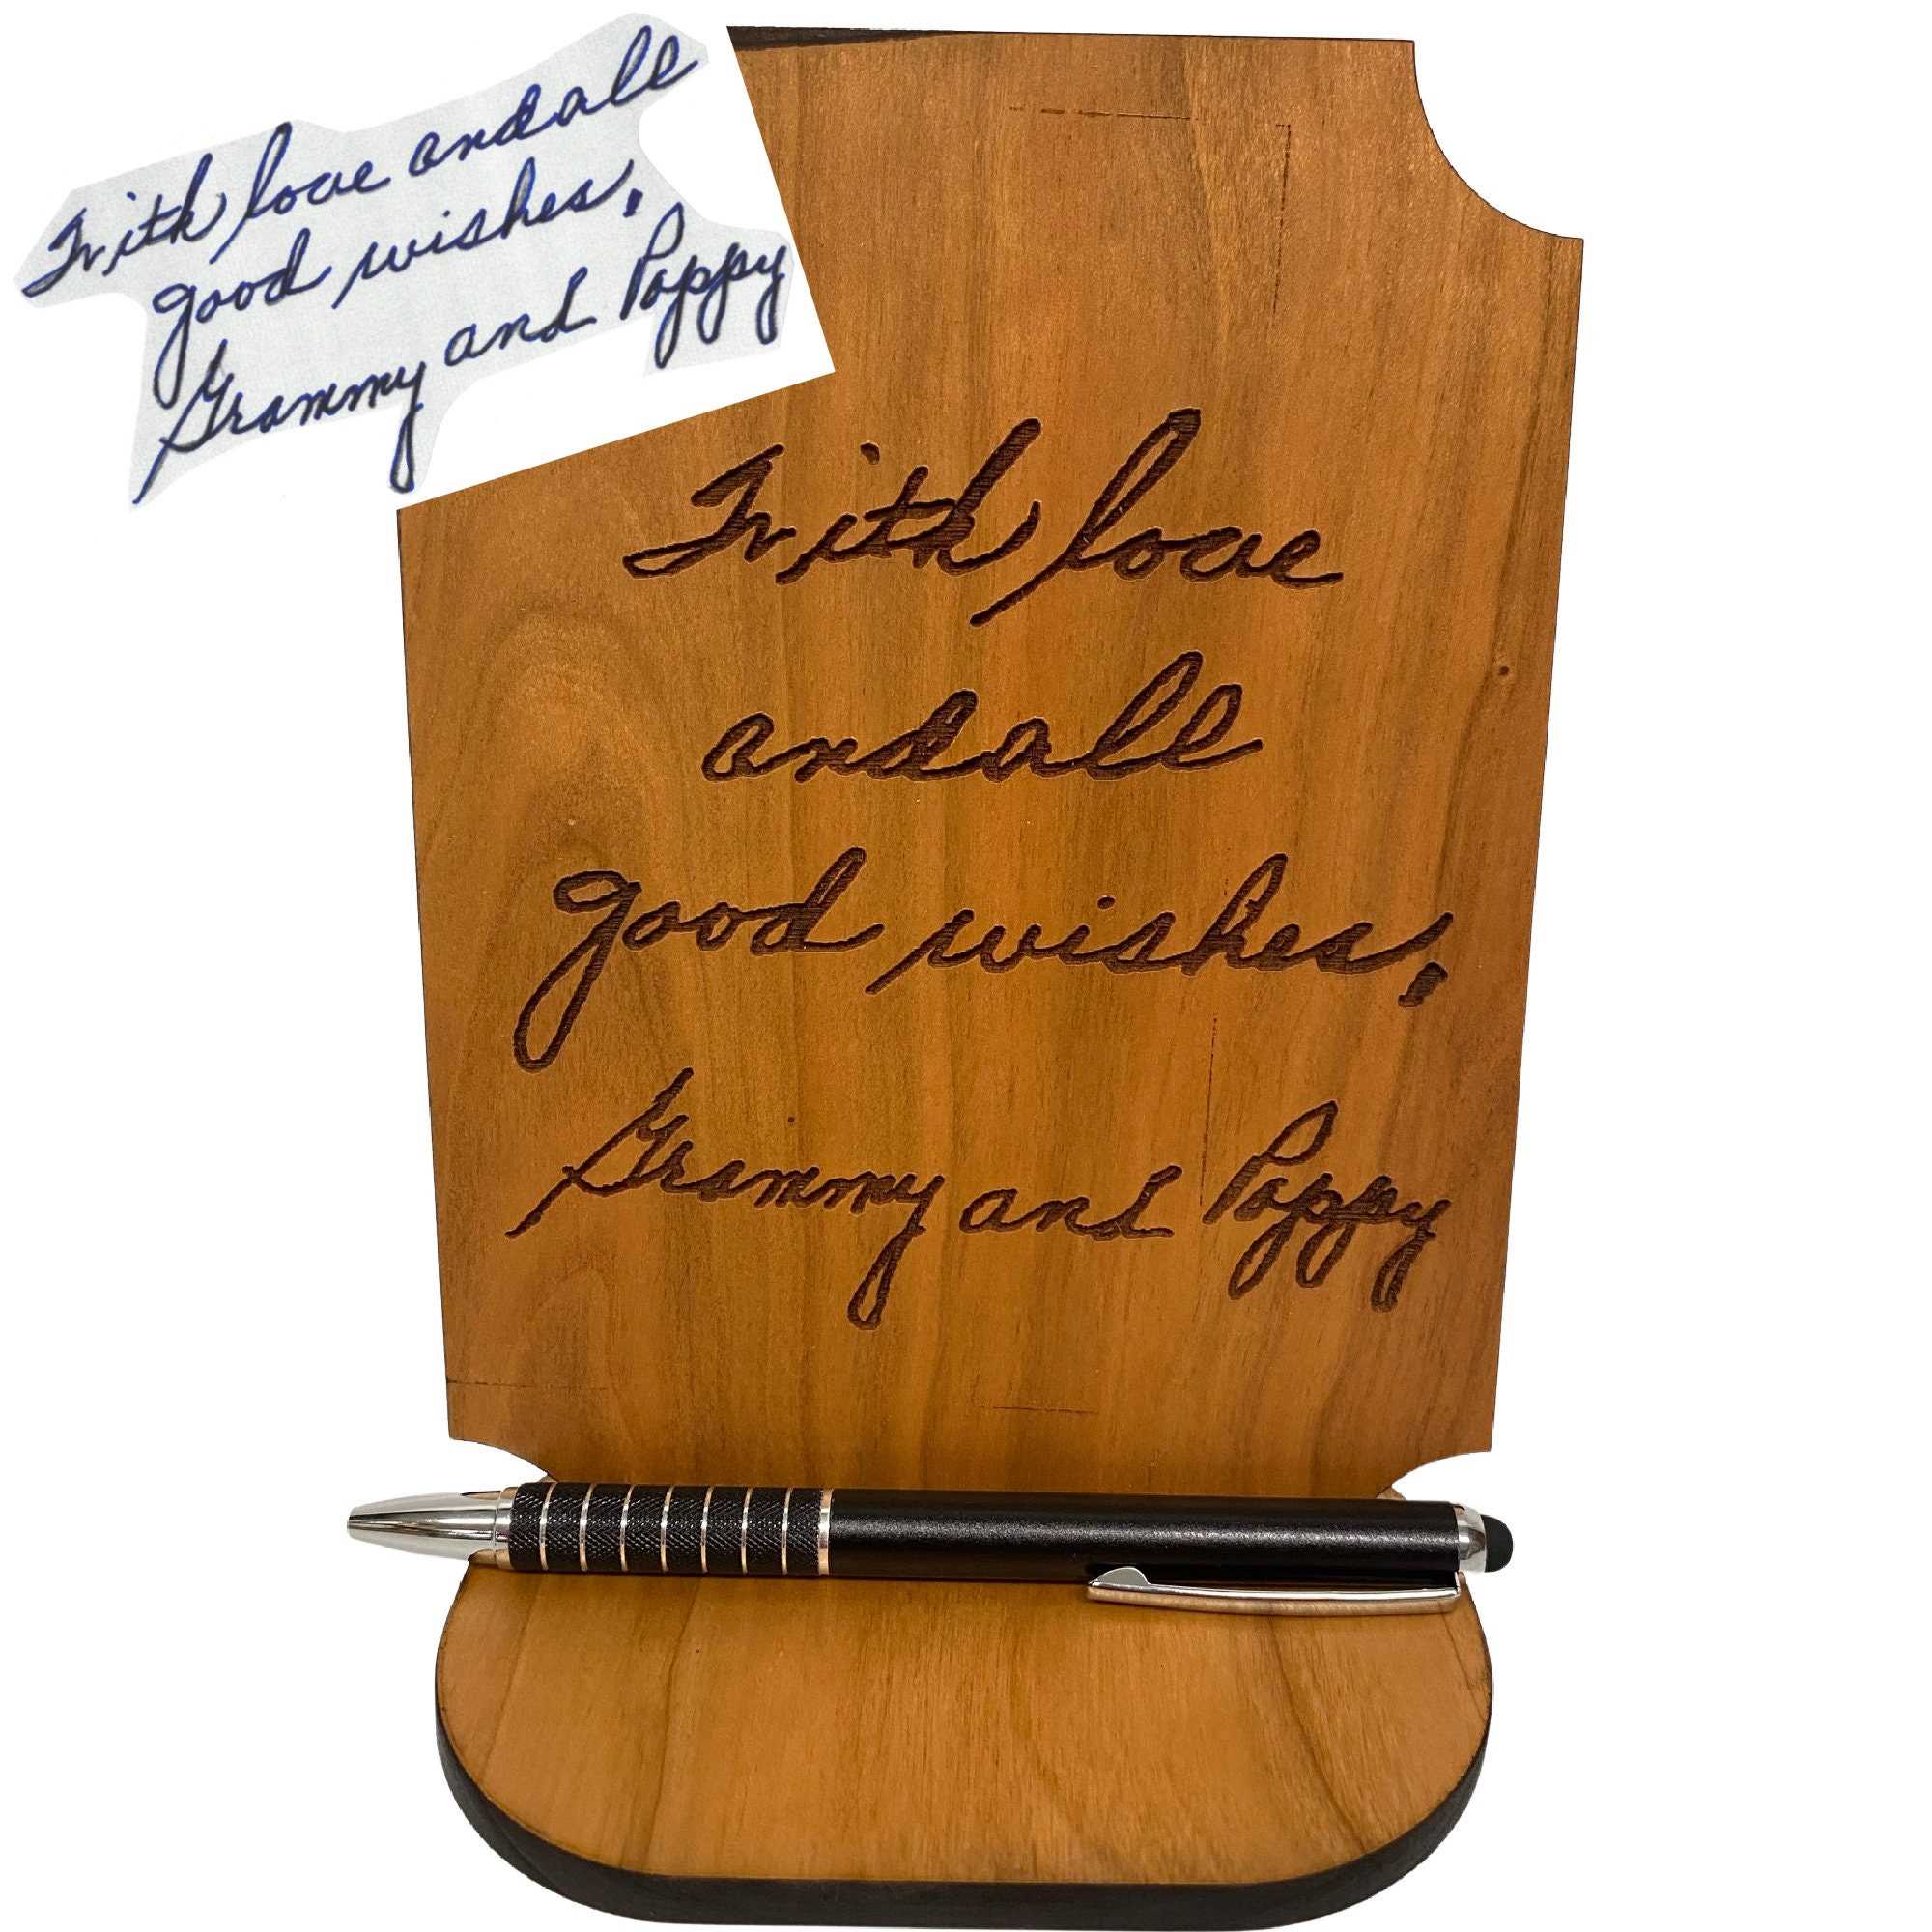 With love and all
good wishes,
Grammy and Poppy
With love
and all
good wishes,
Grammy and Poppy